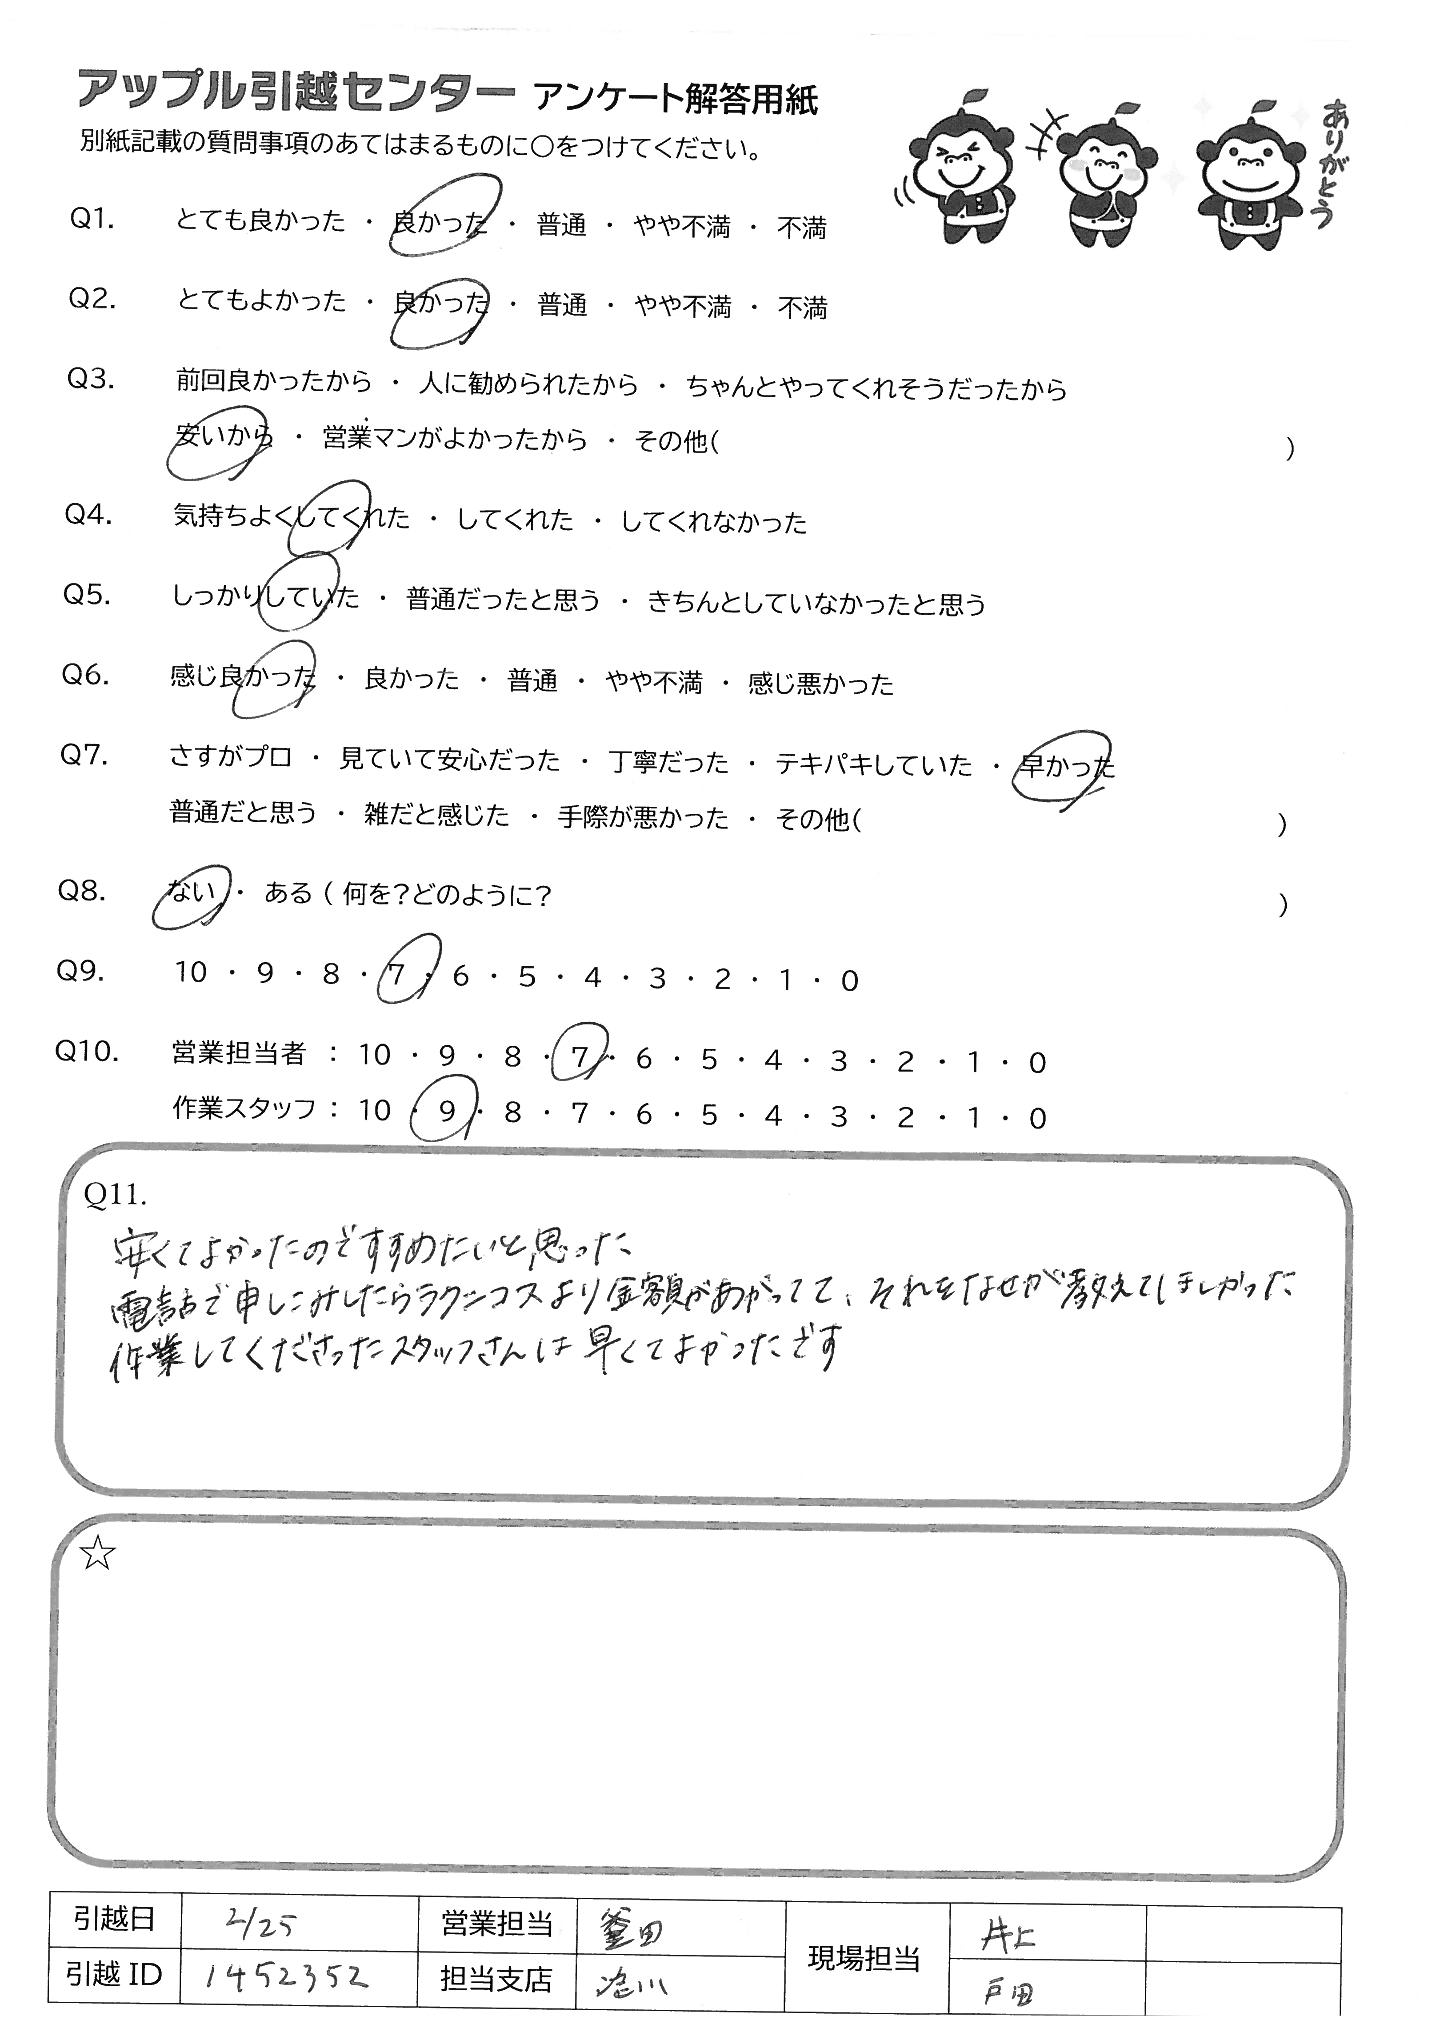 アップル引越センター アンケート解答用紙
別紙記載の質問事項のあてはまるものに〇をつけてください。
ありがとう
Q1. とても良かった ・ 良かった ・ 普通 ・ やや不満 ・ 不満
Q2. とてもよかった ・ 良かった ・ 普通 ・ やや不満 ・ 不満
Q3. 前回良かったから ・ 人に勧められたから ・ ちゃんとやってくれそうだったから
安いから ・ 営業マンがよかったから ・ その他( )
Q4. 気持ちよくしてくれた ・ してくれた ・ してくれなかった
Q5. しっかりしていた ・ 普通だったと思う ・ きちんとしていなかったと思う
Q6. 感じ良かった ・ 良かった ・ 普通 ・ やや不満 ・ 感じ悪かった
Q7. さすがプロ ・ 見ていて安心だった ・ 丁寧だった ・ テキパキしていた ・ 早かった
普通だと思う ・ 雑だと感じた ・ 手際が悪かった ・ その他( )
Q8. ない ・ ある ( 何を?どのように? )
Q9. 10 ・ 9 ・ 8 ・ 7 ・ 6 ・ 5 ・ 4 ・ 3 ・ 2 ・ 1 ・ 0
Q10. 営業担当者 : 10 ・ 9 ・ 8 ・ 7 ・ 6 ・ 5 ・ 4 ・ 3 ・ 2 ・ 1 ・ 0
作業スタッフ : 10 ・ 9 ・ 8 ・ 7 ・ 6 ・ 5 ・ 4 ・ 3 ・ 2 ・ 1 ・ 0
Q11.
安くてよかったのですすめたいと思った
電話で申しこみしたらラクニコスより金額があがってて、それをなぜか教えてほしかった
作業してくださったスタッフさんは早くてよかったです
☆
引越日 2/25 営業担当 釜田 現場担当 井上
引越 ID 1452352 担当支店 戸田